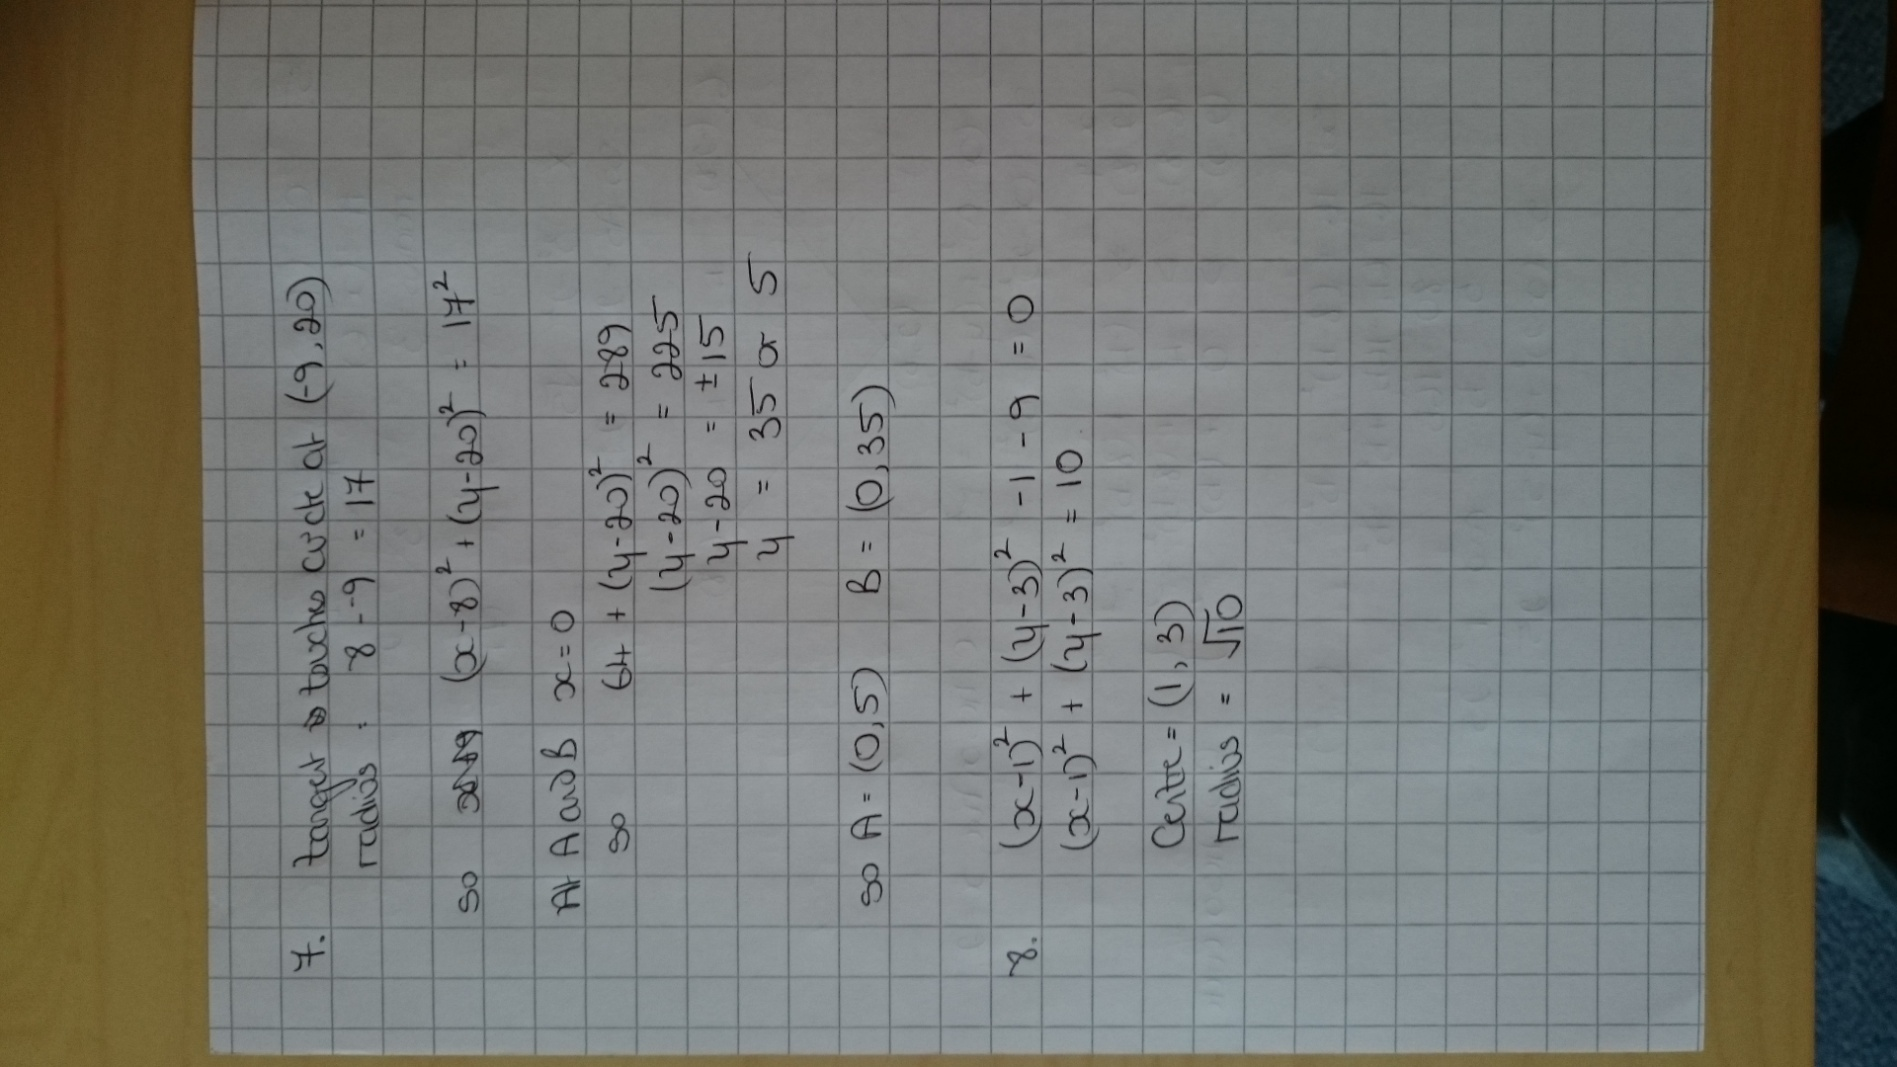 7. tangent touches circle at (-9, 20)
radius = 8 - -9 = 17
so (x-8)² + (y-20)² = 17²
At A and B x=0
so 64 + (y-20)² = 289
(y-20)² = 225
y-20 = ±15
y = 35 or 5
so A = (0,5) B = (0,35)
8. (x-1)² + (y-3)² -1 -9 = 0
(x-1)² + (y-3)² = 10
Centre = (1,3)
radius = √10